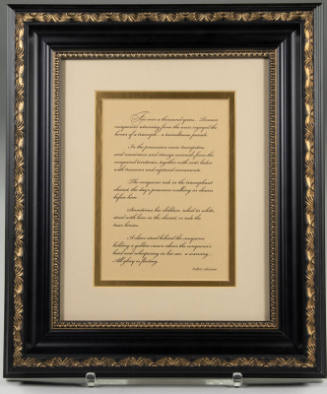 For over a thousand years, Roman
conquerors returning from the wars enjoyed the
honor of a triumph - a tumultuous parade.
In the procession came trumpeters
and musicians and strange animals from the
conquered territories, together with carts laden
with treasure and captured armaments.
The conqueror rode in the triumphant
chariot, the dazed prisoners walking in chains
before him.
Sometimes his children, robed in white,
stood with him in the chariot, or rode the
trace horses.
A slave stood behind the conqueror
holding a golden crown above the conqueror's
head and whispering in his ear a warning...
All glory is fleeting.